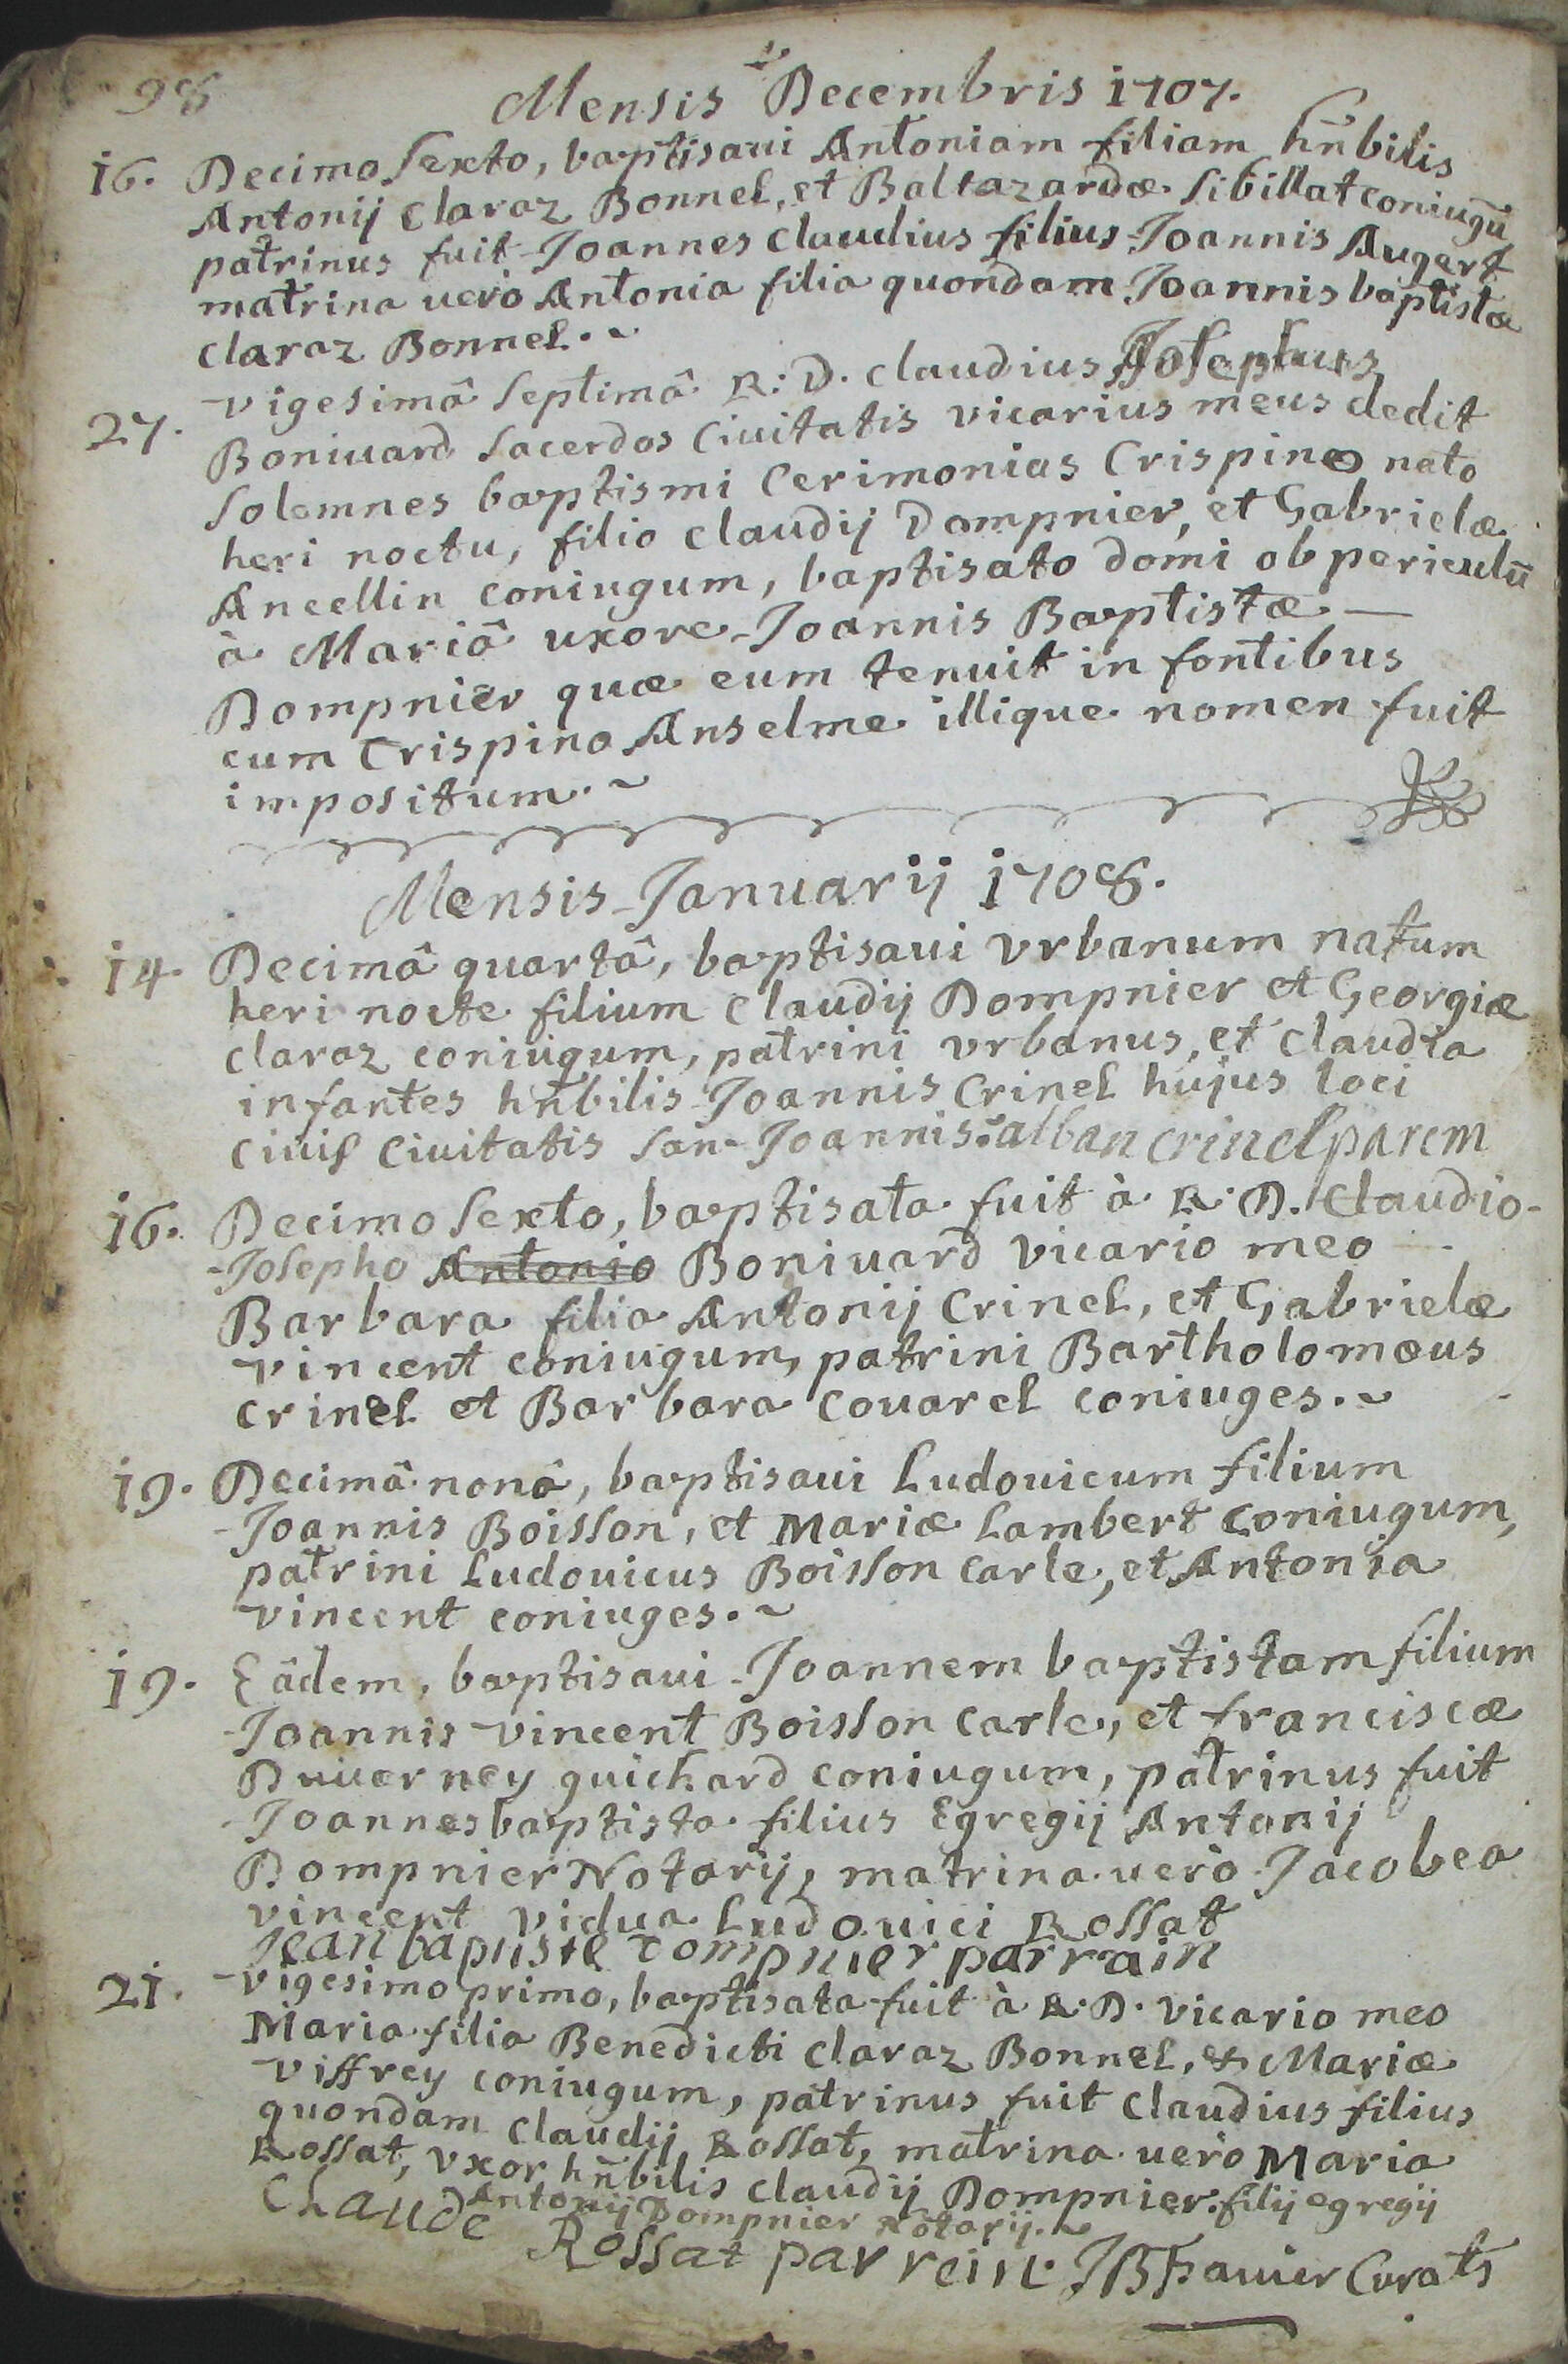 98
Mensis Decembris 1707.
16. Decimo Sexto, baptisaui Antoniam filiam hñbilis
Antonij claraz Bonnel, et Baltazardæ Sibillat coniugũ
patrinus fuit Joannes claudius filius Joannis Augert
matrina uerò Antonia filia quondam Joannis baptistæ
claraz Bonnel.~
27. vigesimâ septimâ R: D. claudius Josephus
Boniuard sacerdos Ciuitatis vicarius meus dedit
solemnes baptismi Cerimonias Crispino nato
heri noctu, filio claudij Dompnier, et Gabrielæ
Ancellin coniugum, baptisato domi ob periculũ
à Mariâ uxore Joannis Baptistæ —
Dompnier quæ eum tenuit in fontibus
cum Crispino Anselme illique nomen fuit
impositum.~
Mensis Januarij 1708.
14. Decimâ quartâ, baptisaui vrbanum natum
heri nocte filium claudij Dompnier et Georgiæ
claraz coniugum, patrini vrbanus, et claudia
infantes hñbilis Joannis Crinel hujus loci
ciuis Ciuitatis San-Joannis: alban crinel parem
16. Decimo Sexto, baptisata fuit à R. D. Claudio-
-Josepho Antonio Boniuard vicario meo
Barbara filia Antonij Crinel, et Gabrielæ
vincent coniugum, patrini Bartholomæus
Crinel et Barbara Couarel coniuges.~
19. Decimâ nonâ, baptisaui Ludouicum filium
Joannis Boisson, et Mariæ Lambert coniugum,
patrini Ludouicus Boisson Carle, et Antonia
vincent coniuges.~
19. Eâdem, baptisaui Joannem baptistam filium
Joannis vincent Boisson Carle, et franciscæ
Duuerney guichard coniugum, patrinus fuit
Joannes baptista filius Egregij Antonij
Dompnier Notarij, matrina uerò Jacobea
vincent vidua Ludouici Rossat
Jean baptiste dompnier parrain
21. vigesimo primo, baptisata fuit à R. D. vicario meo
Maria filia Benedicti claraz Bonnel, et Mariæ
viffrey coniugum, patrinus fuit claudius filius
quondam claudij Rossat, matrina uerò Maria
Rossat, vxor hñbilis claudij Dompnier filij egregij
Antonij Dompnier Notarij.~
Claude Rossat parrein. JB favier Curats